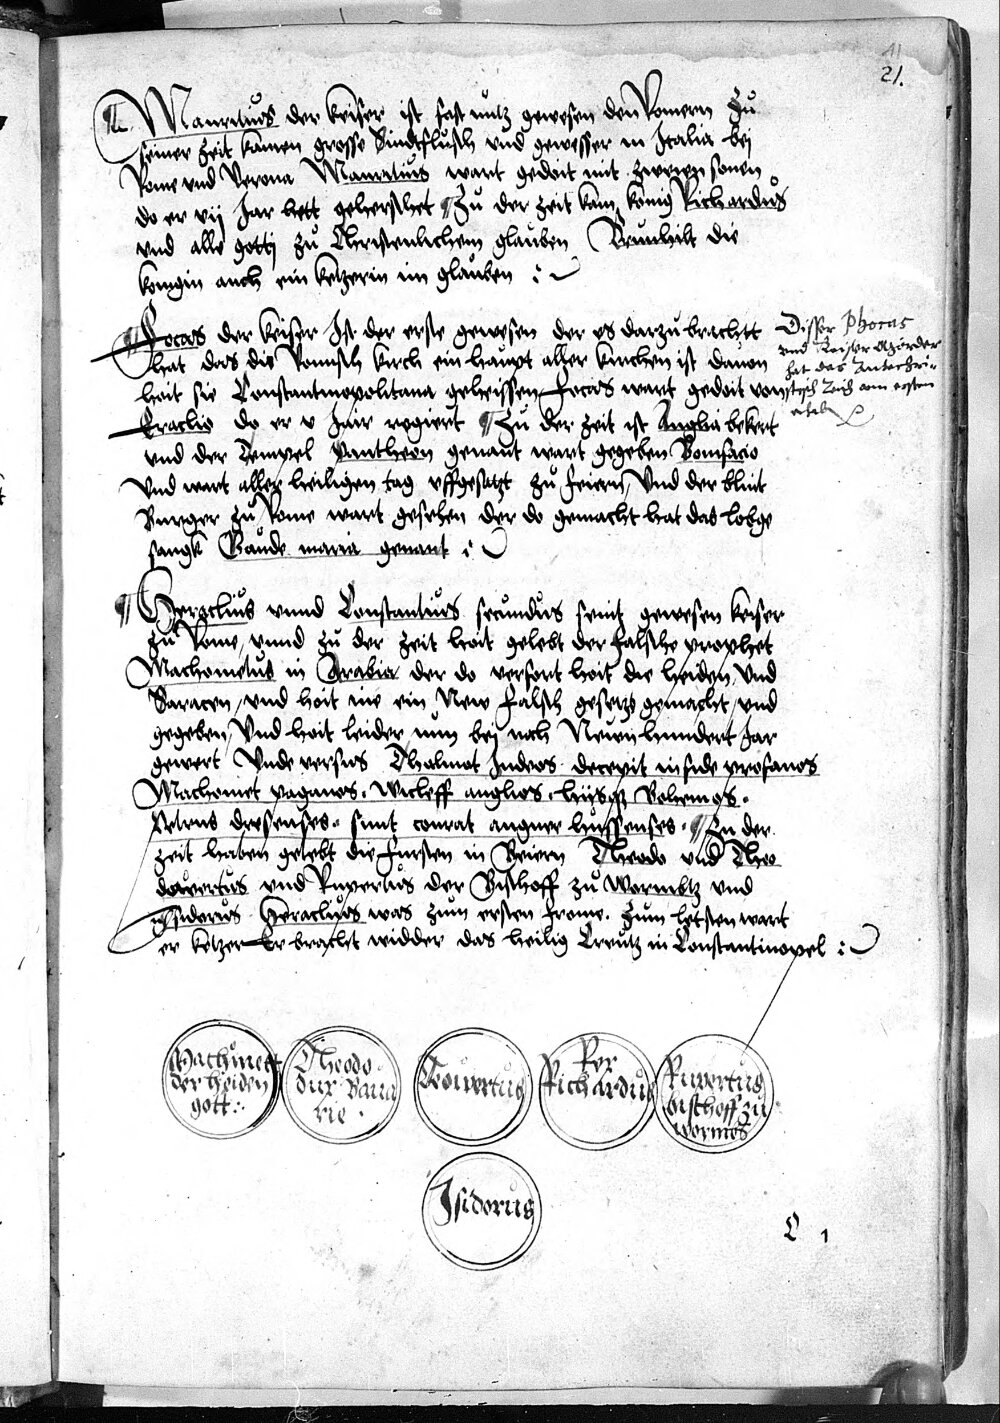 11
21.
Mauritius der keiser ist fast nutz gewesen den Romern Zu
seiner zeit kamen grosse Sindtflusch und gewesser in Italia bei
Rome und Verona Mauritius wart gedoit mit zweyen sonen
do er vij Jar hett geherschet Zu der zeit kam konig Richardus
und alle gottj zu Christenlichem glauben Brunhilt die
konigin auch ein ketzerin im glauben
Focas der keiser Ist der erste gewesen der es darzu brachtt
hat das die Romisch kirch ein haupt aller kirchen ist davon
hait sie Constantinopolitana geheissen Focas wart gedoit von
Eraclio do er v Jair regiert Zu der zeit ist Anglia bekert
und der Tempel Pantheon genant wart gegeben Bonifacio
Und wart aller heiligen tag uffgesetzt zu feiern, Und der blint
Burger zu Rome wart gesehen der do gemacht hat das lobge
sangk Gaude maria genant
Disser Phocas
und Keiser Mörder
hat das Antechri-
stisch Reich am ersten
Heraclius unnd Constantius secundus seint gewesen keiser
zu Rome, unnd zu der zeit hait gelebt der falsche prophet
Machometus in Arabia der do verfort hoit die heiden, Und
Saracen, und hoit nie ein New falsch gesetzs gemacht, und
gegeben, Und hoit leider nun bej noch Neun hundert Jar
gewert Unde versus Thalmot Judeos decepit in fide profanos
Machomet paganos. Wicleff anglios. Bohemos.
Petrus dresenses. sunt conrat hussenses. Zu der
zeit haben gelebt die fursten in Beiern Theodo und Theo
und Rupertus der Bischoff zu Wormbtz und
Issiderus Heraclius was zum ersten frome. Zum letsten wart
er ketzer Er bracht widder das heilig Creutz in Constantinopel
Machmett
der heiden
gott
Theodo
dux Bava
rie
Rex
Richardus
Rupertus
bischoff zu
wormes
Isidorus
C 1